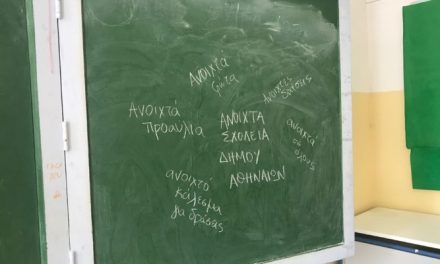 Ανοιχτά
φώτα
Ανοιχτές
Ανοιχτά
προαύλια
ΑΝΟΙΧΤΑ
ΣΧΟΛΕΙΑ
ΔΗΜΟΥ
ΑΘΗΝΑΙΩΝ
ανοιχτά
σε
όλους
ανοιχτό
κάλεσμα
για δράσεις